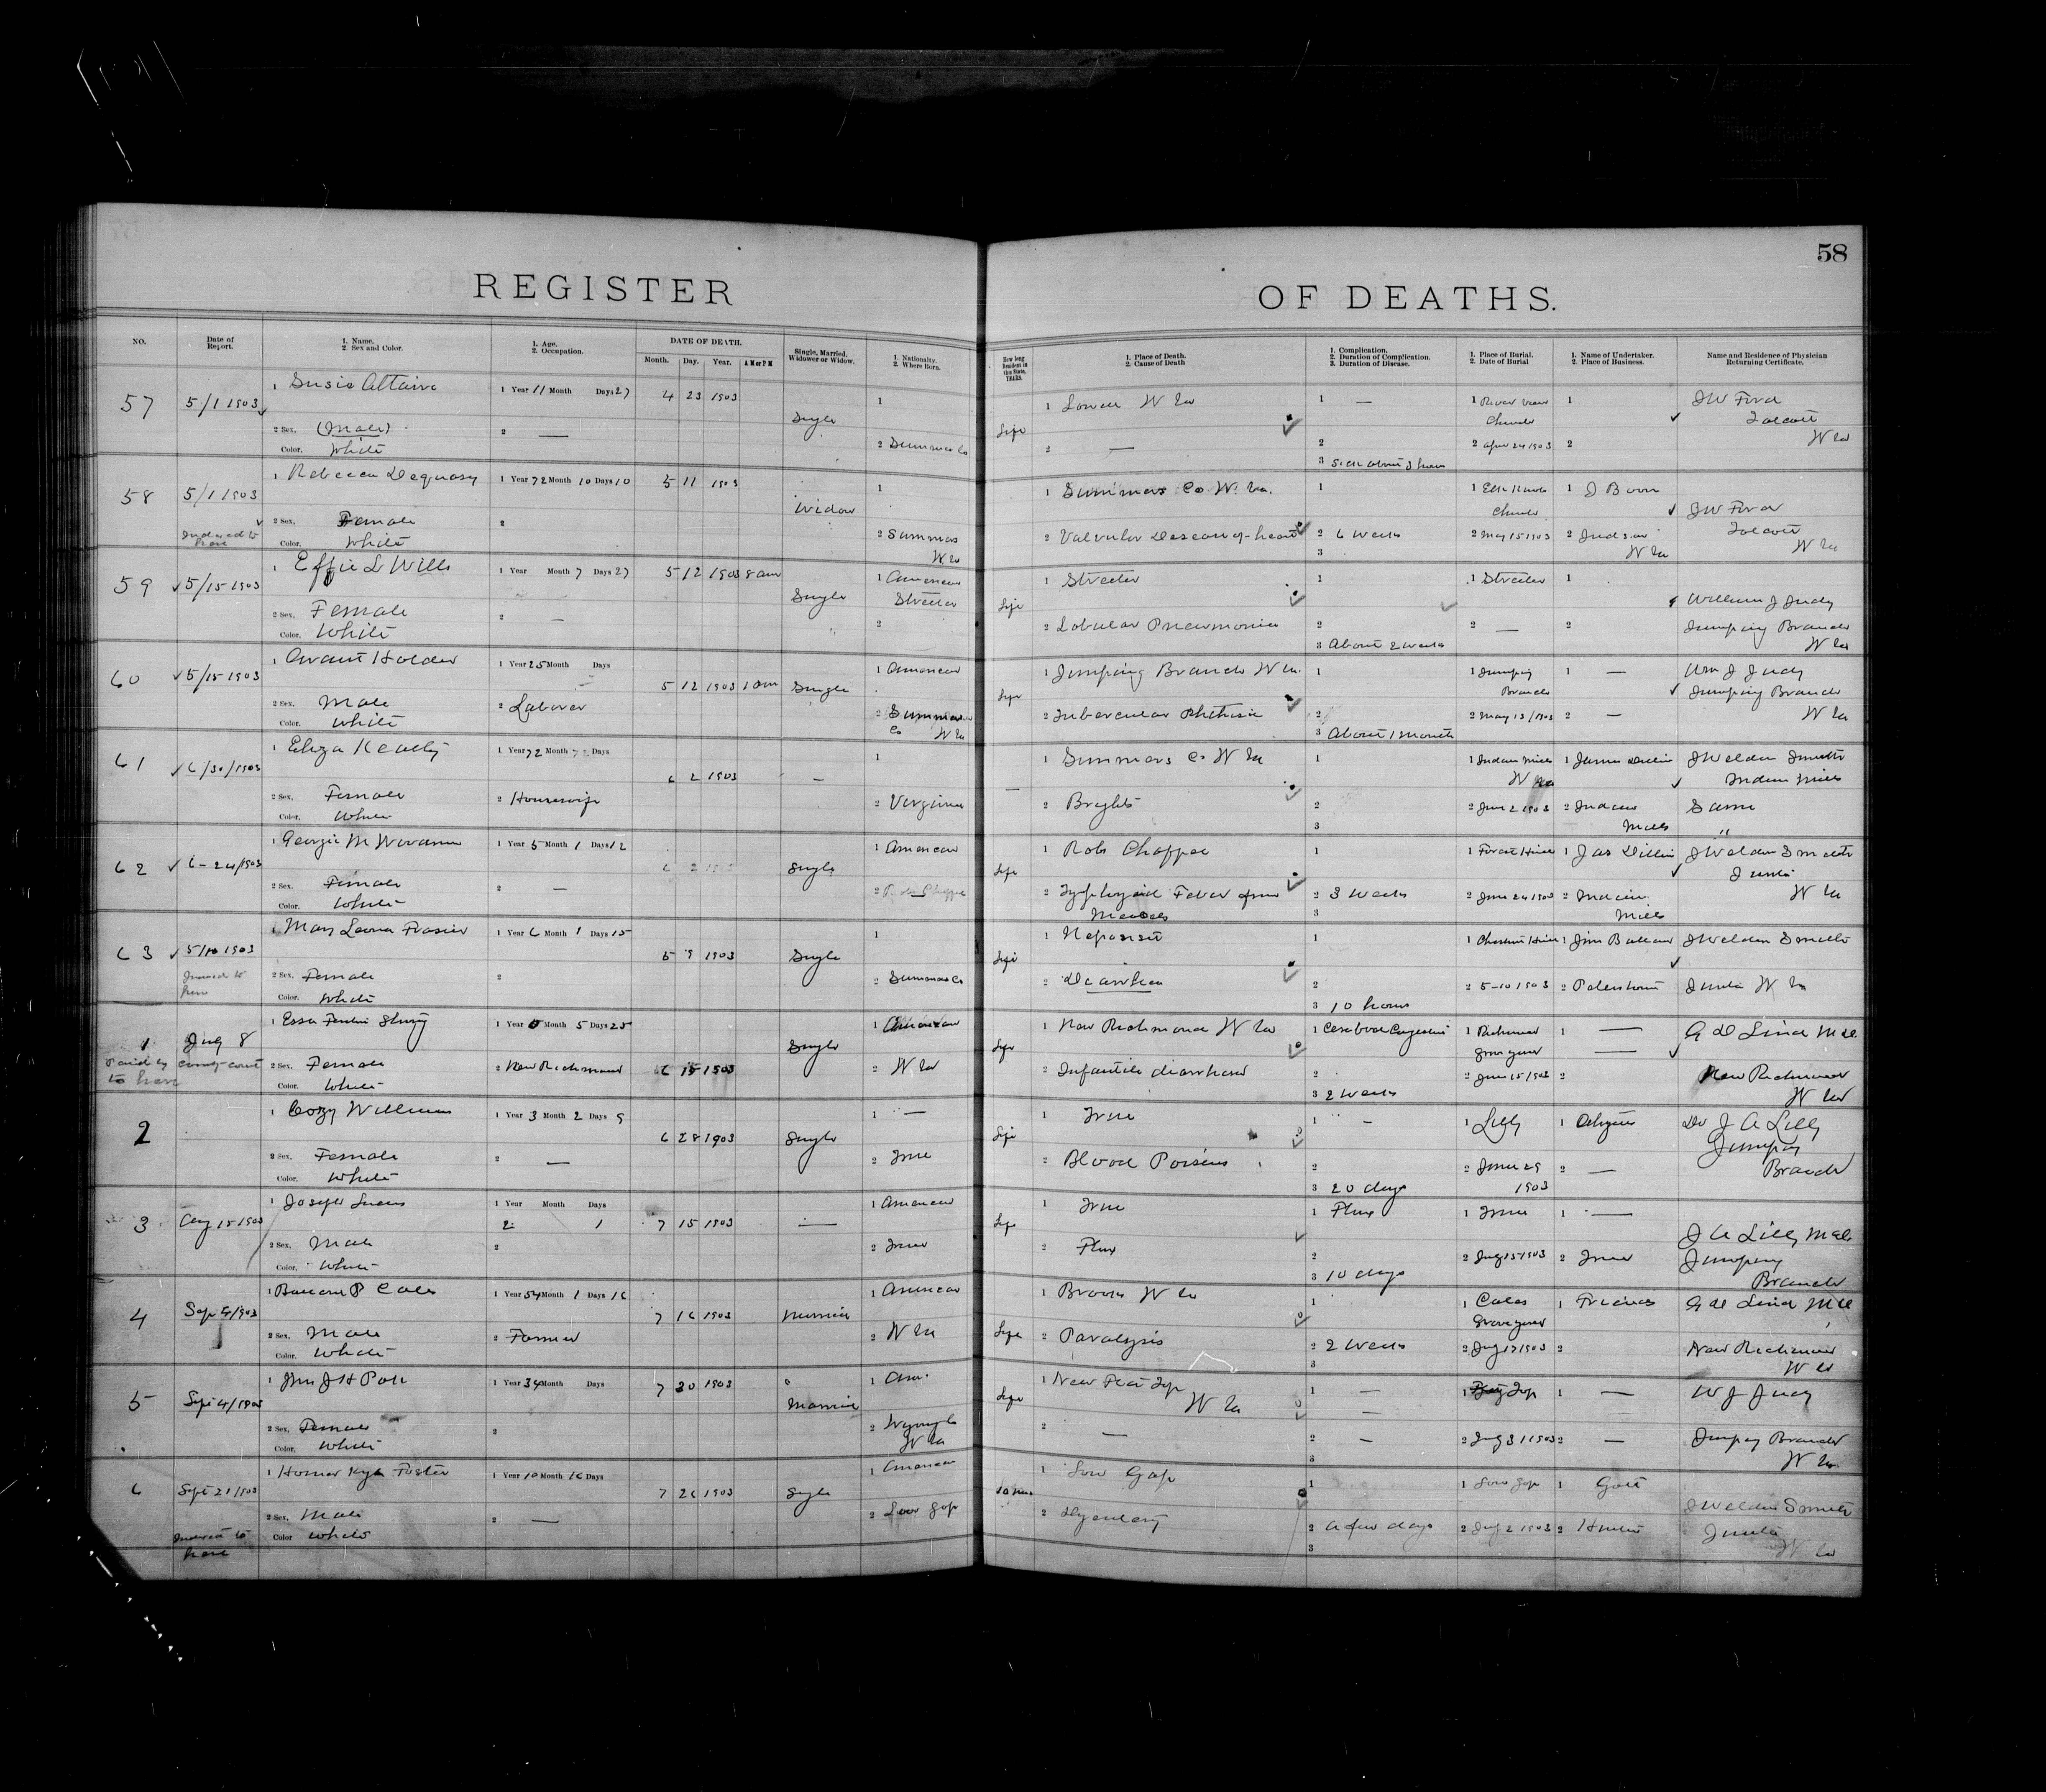 58
REGISTER OF DEATHS.
NO.
Date of Report.
1. Name.
2. Sex and Color.
1. Age.
2. Occupation.
DATE OF DEATH.
Month. Day. Year. A M or P M
Single, Married, Widower or Widow.
1. Nationalty.
2. Where Born.
How long Resident in this State, YEARS.
1. Place of Death.
2. Cause of Death
1. Complication.
2. Duration of Complication.
3. Duration of Disease.
1. Place of Burial.
2. Date of Burial
1. Name of Undertaker.
2. Place of Business.
Name and Residence of Physician Returning Certificate.
57 5/1 1903 1 Susie 1 Year 11 Month Days 27 4 23 1903 Single 1
2 Sex, (Male) 2 — 2 Summers Co
Color, White
Life 1 W Va 1 — 1 River View Church 1 J W Ford
2 — 2 2 Apr 24 1903 2 Talcott
3 Sick about 3 hours W Va
58 5/1 1903 1 Rebecca 1 Year 72 Month 10 Days 10 5 11 1903 Widow 1
Indexed to here 2 Sex, Female 2 2 Summers W Va
Color, White
1 Summers Co. W. Va. 1 1 Church 1 J Boon J W Ford
2 Valvular Disease of heart 2 6 weeks 2 May 15 1903 2 W Va Talcott
3 W Va
59 5/15 1903 1 Effie L Wills 1 Year Month 7 Days 27 5 12 1903 8 am Single 1 American
2 Sex, Female 2 — Streeter
Color, White 2
Life 1 Streeter 1 1 Streeter 1 William J Judy
2 Lobular Pneumonia 2 2 — 2 Jumping Branch
3 About 2 weeks W Va
60 5/15 1903 1 Holder 1 Year 25 Month Days 5 12 1903 1 am Single 1 American
2 Sex, Male 2 Laborer 2 Summers Co W Va
Color, White
Life 1 Jumping Branch W Va. 1 1 Jumping Branch 1 — Wm J Judy
2 Tubercular Phthisis 2 2 May 13/1903 2 — Jumping Branch
3 About 1 month W Va
61 6/30/1903 1 Eliza 1 Year 72 Month Days 6 2 1903 — 1
2 Sex, Female 2 Housewife 2 Virginia
Color, White
— 1 Summers Co W Va 1 1 Indian Mills W Va 1 James J Weldon Smith
2 Brights 2 2 June 2 1903 2 Indian Mills Indian Mills
3 Same
"
62 6-24/1903 1 Georgie M 1 Year 5 Month 1 Days 12 6 2 Single 1 American
2 Sex, Female 2 — 2
Color, White
Life 1 1 1 Forest Hill 1 Jas Dillin J Weldon Smith
2 Typhoid Fever from Measles 2 3 weeks 2 June 24 1903 2 Indian Mills Junta
3 W Va
63 5/10 1903 1 Mary Leona Frasier 1 Year 6 Month 1 Days 15 5 9 1903 Single 1
Indexed to here 2 Sex, Female 2 2 Summers Co
Color, White
Life 1 1 1 Chestnut Hill 1 Jim Ballard J Weldon Smith
2 Diarrhea 2 2 5-10 1903 2 Junta W Va
3 10 hours
1 July 8 1 Essa 1 Year 0 Month 5 Days 25 6 15 1903 Single 1 American
Paid by County Court to here 2 Sex, Female 2 New Richmond 2 W Va
Color, White
Life 1 New Richmond W Va 1 1 Richmond Grave yard 1 — G L
2 Infantile diarrhea 2 2 June 15/1903 2 New Richmond
3 2 weeks W Va
2 1 Cozy Williams 1 Year 3 Month 2 Days 9 6 28 1903 Single 1 —
2 Sex, Female 2 — 2 True
Color, White
Life 1 True 1 — 1 Lilly 1 Dr J A Lilly
2 Blood Poison 2 2 June 29 1903 2 — Jumping Branch
3 20 days
3 Aug 15 1903 1 Joseph 1 Year Month Days 7 15 1903 — 1 American
2 1
2 Sex, Male 2 2 True
Color, White
Life 1 True 1 Flux 1 True 1 — J A Lilly
2 Flux 2 2 July 15 1903 2 True Jumping Branch
3 10 days
4 Sept 4/1903 1 P Cales 1 Year 54 Month 1 Days 16 7 16 1903 Married 1 American
2 Sex, Male 2 Farmer 2 W Va
Color, White
Life 1 Brooks W Va 1 1 Cales Graveyard 1 Friends G L
2 Paralysis 2 2 weeks 2 July 17 1903 2 New Richmond
3 W Va
5 Sept 4/1903 1 J H 1 Year 34 Month Days 7 30 1903 Married 1 Am.
2 Sex, Female 2 2 W Va
Color, White
Life 1 New Flat Top W Va 1 — 1 Top 1 — W J Judy
2 — 2 — 2 July 31 1903 2 — Jumping Branch
3 W Va
6 Sept 21/1903 1 Homer Kyle Foster 1 Year 10 Month 16 Days 7 26 1903 Single 1 American
Indexed to here 2 Sex, Male 2 — 2 Low Gap
Color White
1 Low Gap 1 1 Low Gap 1 J Weldon Smith
2 Dysentery 2 A few days 2 July 2 1903 2 Junta
3 W Va